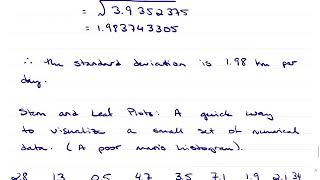 = √3.9352375
= 1.983743305
∴ the standard deviation is 1.98 km per
day.
Stem and Leaf Plots: A quick way
to visualize a small set of numerical
data. (A poor man's histogram).
28 13 0.5 4.7 3.5 7.1 1.9 2.1 34